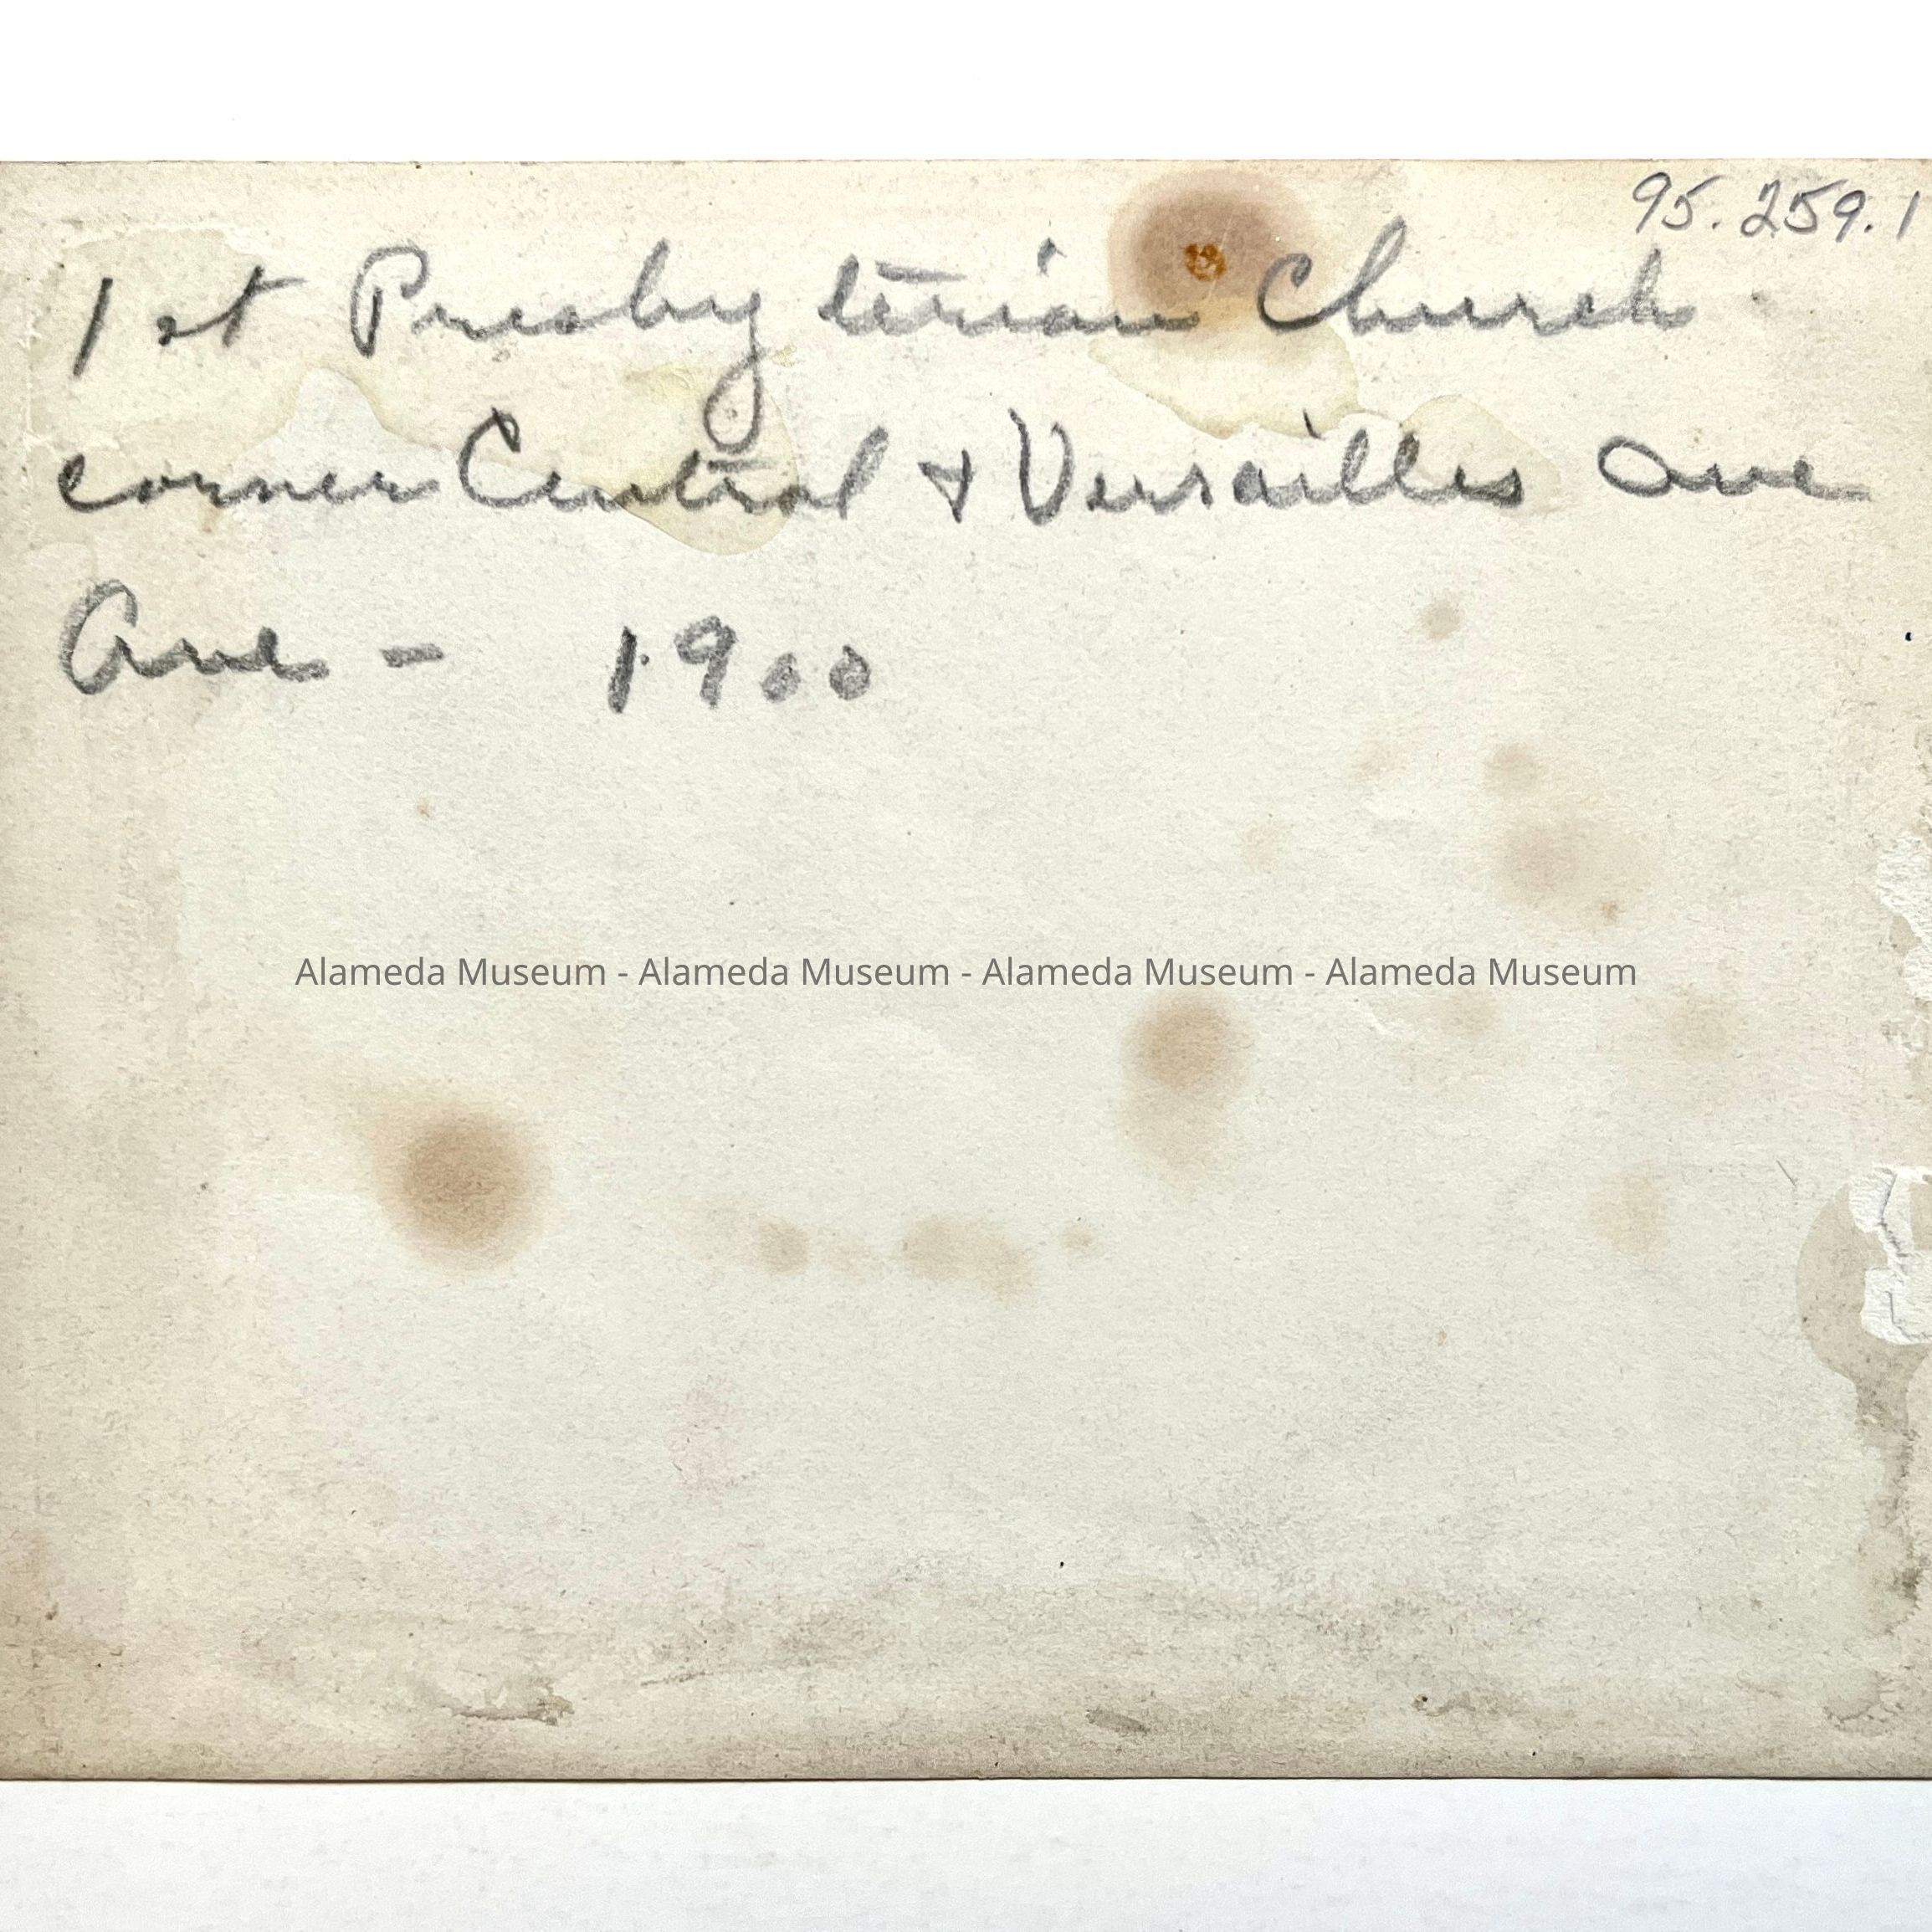 95.259.1
1st Presbyterian Church
corner Central & Versailles Ave
Ave - 1900
Alameda Museum - Alameda Museum - Alameda Museum - Alameda Museum